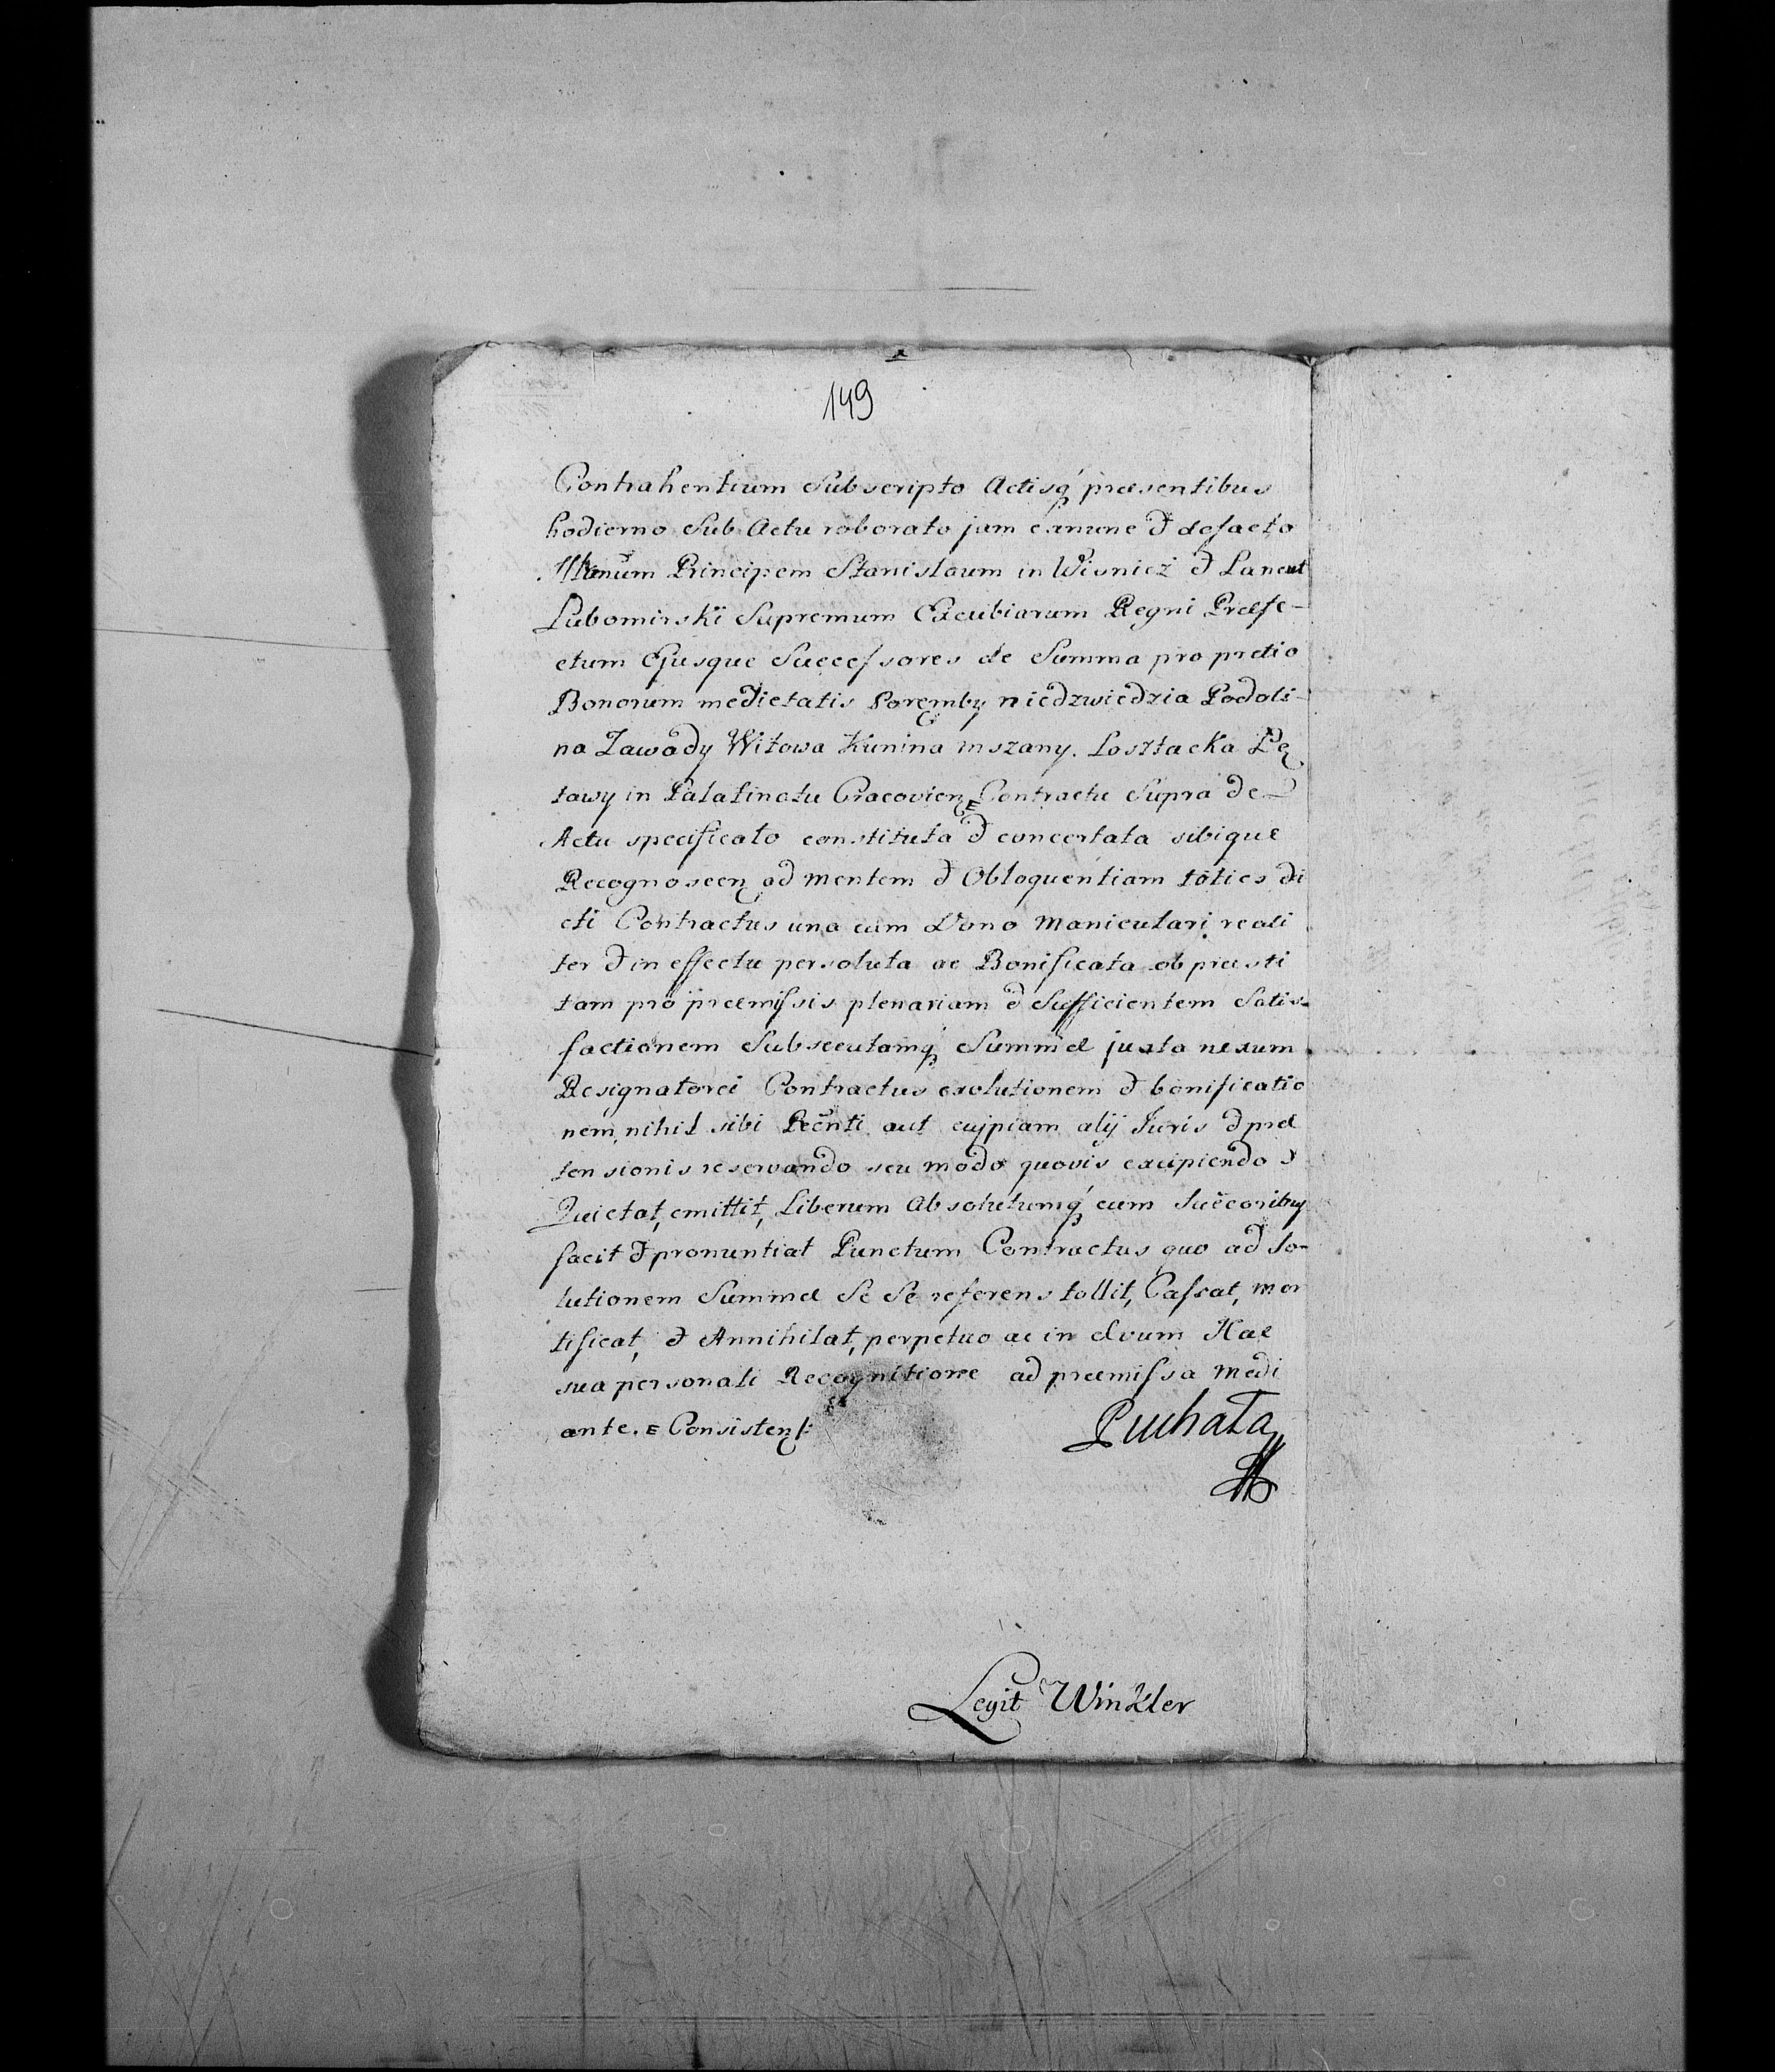 149
Contrahentium Subscripto Actisq́ præsentibus
hodierno Sub Actu roborato jam exnunc & defacto
Illrmum Principem Stanislaum in Wisnicż & Lancut
Lubomirski Supremum Excubiarum Regni Præfe-
ctum Ejusque Successores de Summa pro pretio
Bonorum medietatis Poręmby niedzwiedzia Podoli-
na Zawady Witowa Kunina mszany. Losztacka Łę
tawy in Palatinatu Cracovien E Contractu Supra de
Actu specificato constituta & concertata sibique
Recognoscen ad mentem & Obloquentiam toties di
cti Contractus una cum Dono Maniculari reali
ter & in effectu persoluta ac Bonificata ob præsti
tam pro præmissis plenariam & Sufficientem Satis-
factionem Subsecutamq́ Summæ juxta nexum
Resignatorei Contractus exolutionem & bonificatio
nem, nihil sibi Rečnti aut cujpiam alij Juris & præ
tensionis reservando seu modo quovis excipiendo &
Quietat, emittit, Liberum Absolutumq́ cum Succoribus
facit & pronuntiat Punctum Contractus quo ad so-
lutionem Summæ Se Se referens tollit, Cassat, mor
tificat, & Annihilat, perpetuo ac in ævum Hac
sua personali Recognitione ad præmissa medi
ante. E Consisten/:
Puchała
Legit Winkler